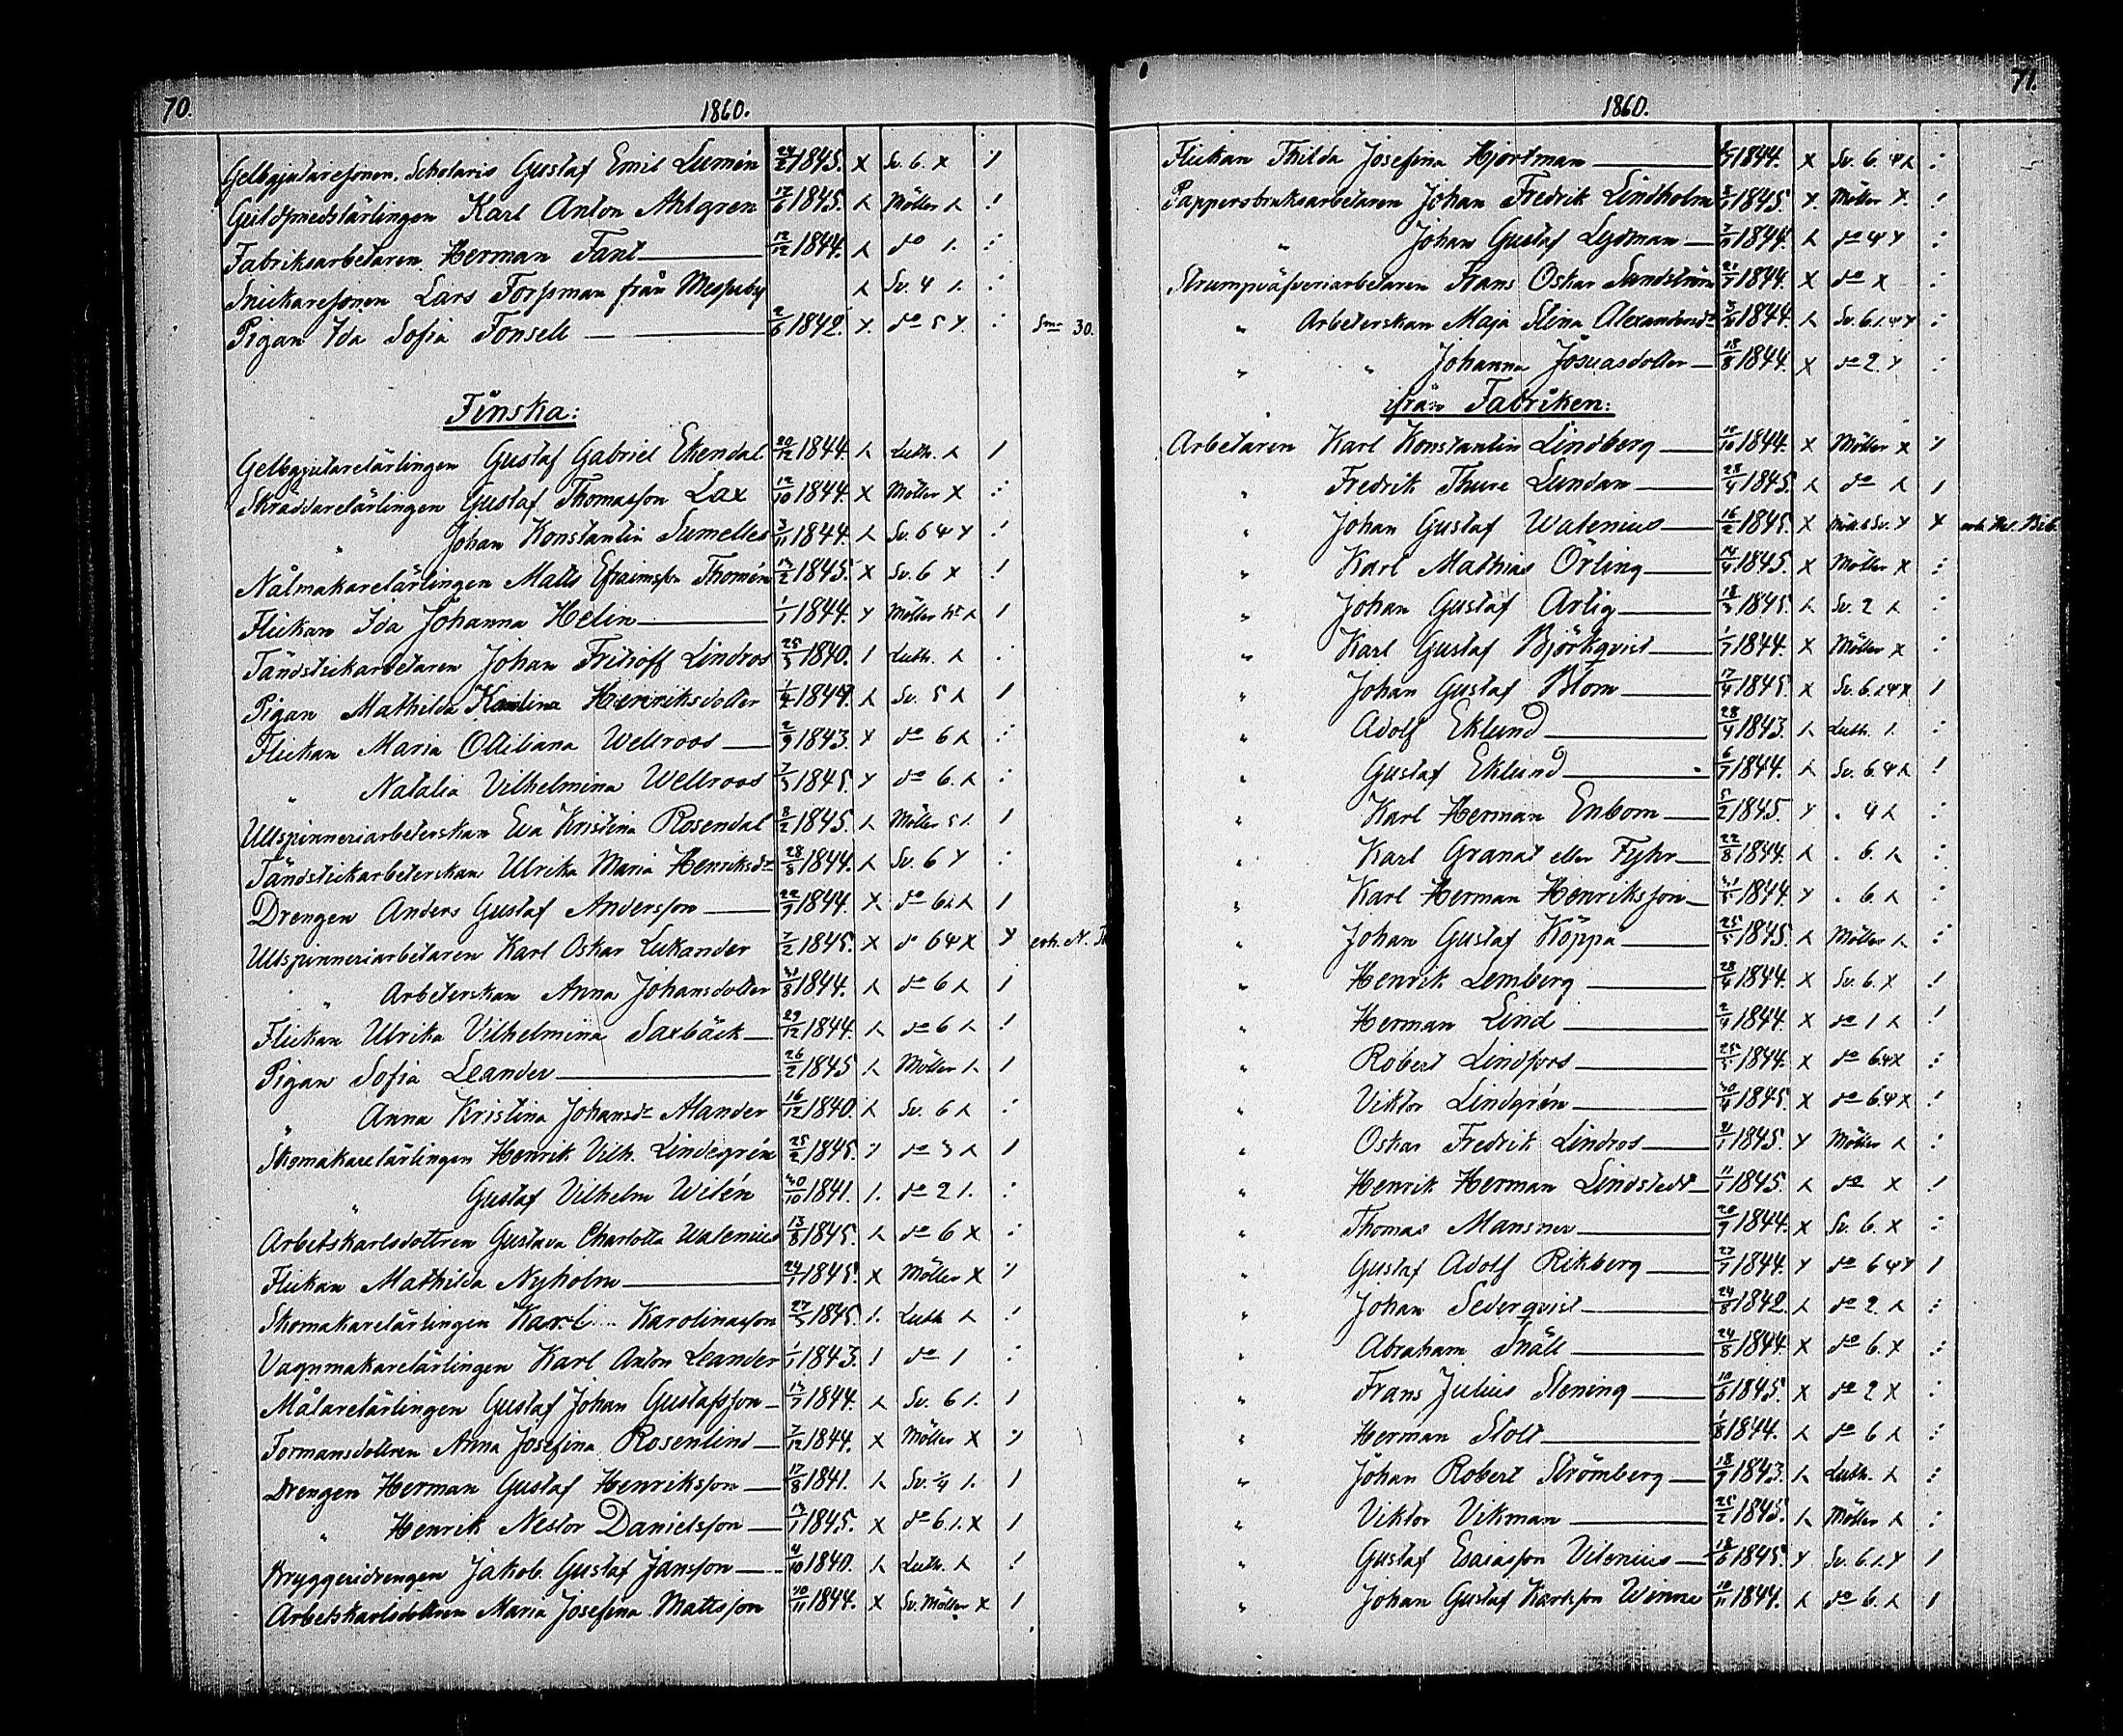 70.
1860.
Gelbgjutaresonen. Scholaris Gustaf Emil Lumén 24/2 1845. x Sv. 6. x
Guldsmedslärlingen Karl Anton Ahlgren 17/6 1845. Möller
Fabriksarbetaren Herman Fant 12/12 1844. do
Snickaresonen Lars Forssman från Sv. 4
Pigan Ida Sofia Fonsell 2/6 1842. do 5 30.
Finska:
Gelbgjutarelärlingen Gustaf Gabriel Ekendal 20/12 1844. Luth.
Skräddarelärlingen Gustaf Thomasson Lax 12/10 1844. x Möller x
" Johan Konstantin Sumelles 3/11 1844. Sv. 6 4
Nålmakarelärlingen Matts Efraimsson Thomén 1845. x Sv. 6 x
Flickan Ida Johanna Helin 1/1 1844. Möller
Tändstickarbetaren Johan Fritioff Lindros 25/3 1840. Luth.
Pigan Mathilda Karolina Henriksdotter 1/4 1844. Sv. 5
Flickan Maria Ottiliana Wellroos 2/9 1843. do 6
" Natalia Vilhelmina Wellroos 7/5 1845. do 6.
Ullspinneriarbeterskan Eva Kristina Rosendal 8/2 1845. Möller 5
Tändstickarbeterskan Ulrika Maria Henriksdr 28/8 1844. Sv. 6
Drengen Anders Gustaf Andersson 22/9 1844. x do 6
Ullspinneriarbetaren Karl Oskar Lukander 7/2 1845. x do 6 4 x erh. N.
" Arbeterskan Anna Johansdotter 31/8 1844. do 6
Flickan Ulrika Vilhelmina Saxbäck 29/12 1844. do 6
Pigan Sofia Leander 26/2 1845 Möller
" Anna Kristina Johansdr Alander 16/12 1840. Sv. 6
Skomakarelärlingen Henrik Vilh. Lindegrén 25/2 1845. do 3
" Gustaf Vilhelm Wilén 30/10 1841. do 2
Arbetskarlsdottren Gustava Charlotta Walenius 13/8 1845. do 6 x
Flickan Mathilda Nyholm 24/1 1845. x Möller x
Skomakarelärlingen Karl Karolinasson 27/5 1845. Luth
Vagnmakarelärlingen Karl Anton Leander 1/1 1843. do
Målarelärlingen Gustaf Johan Gustafsson 1844. Sv. 6
Formansdottren Anna Josefina Rosenlind 7/12 1844. x Möller x
Drengen Herman Gustaf Henriksson 17/8 1841. Sv. 4
" Henrik Nestor Danielsson 1845. x do 6. x
Bryggeridrengen Jakob Gustaf Jansson 4/10 1840. Luth.
Arbetskarlsdottren Maria Josefina Mattsson 10/11 1844. x Sv. Möller x
71.
1860.
Flickan Thilda Josefina Hjortman 1844. x Sv. 6. 4
Pappersbruksarbetaren Johan Fredrik Lindholm 1845. Möller
" Johan Gustaf Lydman 1844. do 4
Strumpväfveriarbetaren Frans Oskar Sandström 21/7 1844. x do x
" Arbeterskan Maja Stina Alexandersdr 1844. Sv. 6. 4
" " Johanna Josuasdotter 18/8 1844. x do 2
ifrån Fabriken:
Arbetaren Karl Konstantin Lindberg 1844. x Möller x
" Fredrik Thure Lundan 28/4 1845. do
" Johan Gustaf Walenius 16/2 1845. x Möll. o Sv. erh. Bib.
" Karl Mathias Örling 14/4 1845. x Möller x
" Johan Gustaf Artig 18/3 1845. Sv. 2
" Karl Gustaf Björkqvist 1/7 1844. x Möller x
" Johan Gustaf Blom 17/4 1845. x Sv. 6. 4 x
" Adolf Eklund 28/4 1843. Luth.
" Gustaf Eklund 6/7 1844. Sv. 6. 4
" Karl Herman Enbom 5/2 1845 " 4
" Karl Granat eller Fyhr 22/8 1844. " 6.
" Karl Herman Henriksson 31/5 1844. " 6.
" Johan Gustaf Koppa 25/5 1845. Möller
" Henrik Lemberg 28/4 1844. x Sv. 6. x
" Herman Lind 2/4 1844. x do 1
" Robert Lindfors 25/5 1844. x do 6.4 x
" Viktor Lindgrén 30/4 1845. x do 6.4 x
" Oskar Fredrik Lindros 21/1 1845. Möller
" Henrik Herman Lindstedt 11/1 1845. do x
" Thomas Mansner 26/9 1844. x Sv. 6. x
" Gustaf Adolf Rikberg 27/7 1844. do 6 4
" Johan Sederqvist 24/8 1842. do 2
" Abraham Snäll 24/8 1844. x do 6. x
" Frans Julius Stening 10/6 1845. x do 2 x
" Herman Stolt 1/8 1844. do 6
" Johan Robert Strömberg 18/9 1843. Luth.
" Viktor Vikman 25/2 1845. Möller
" Gustaf Esaiasson Vilenius 18/6 1845. Sv. 6.
" Johan Gustaf Karlsson Winne 10/11 1844. do 6.